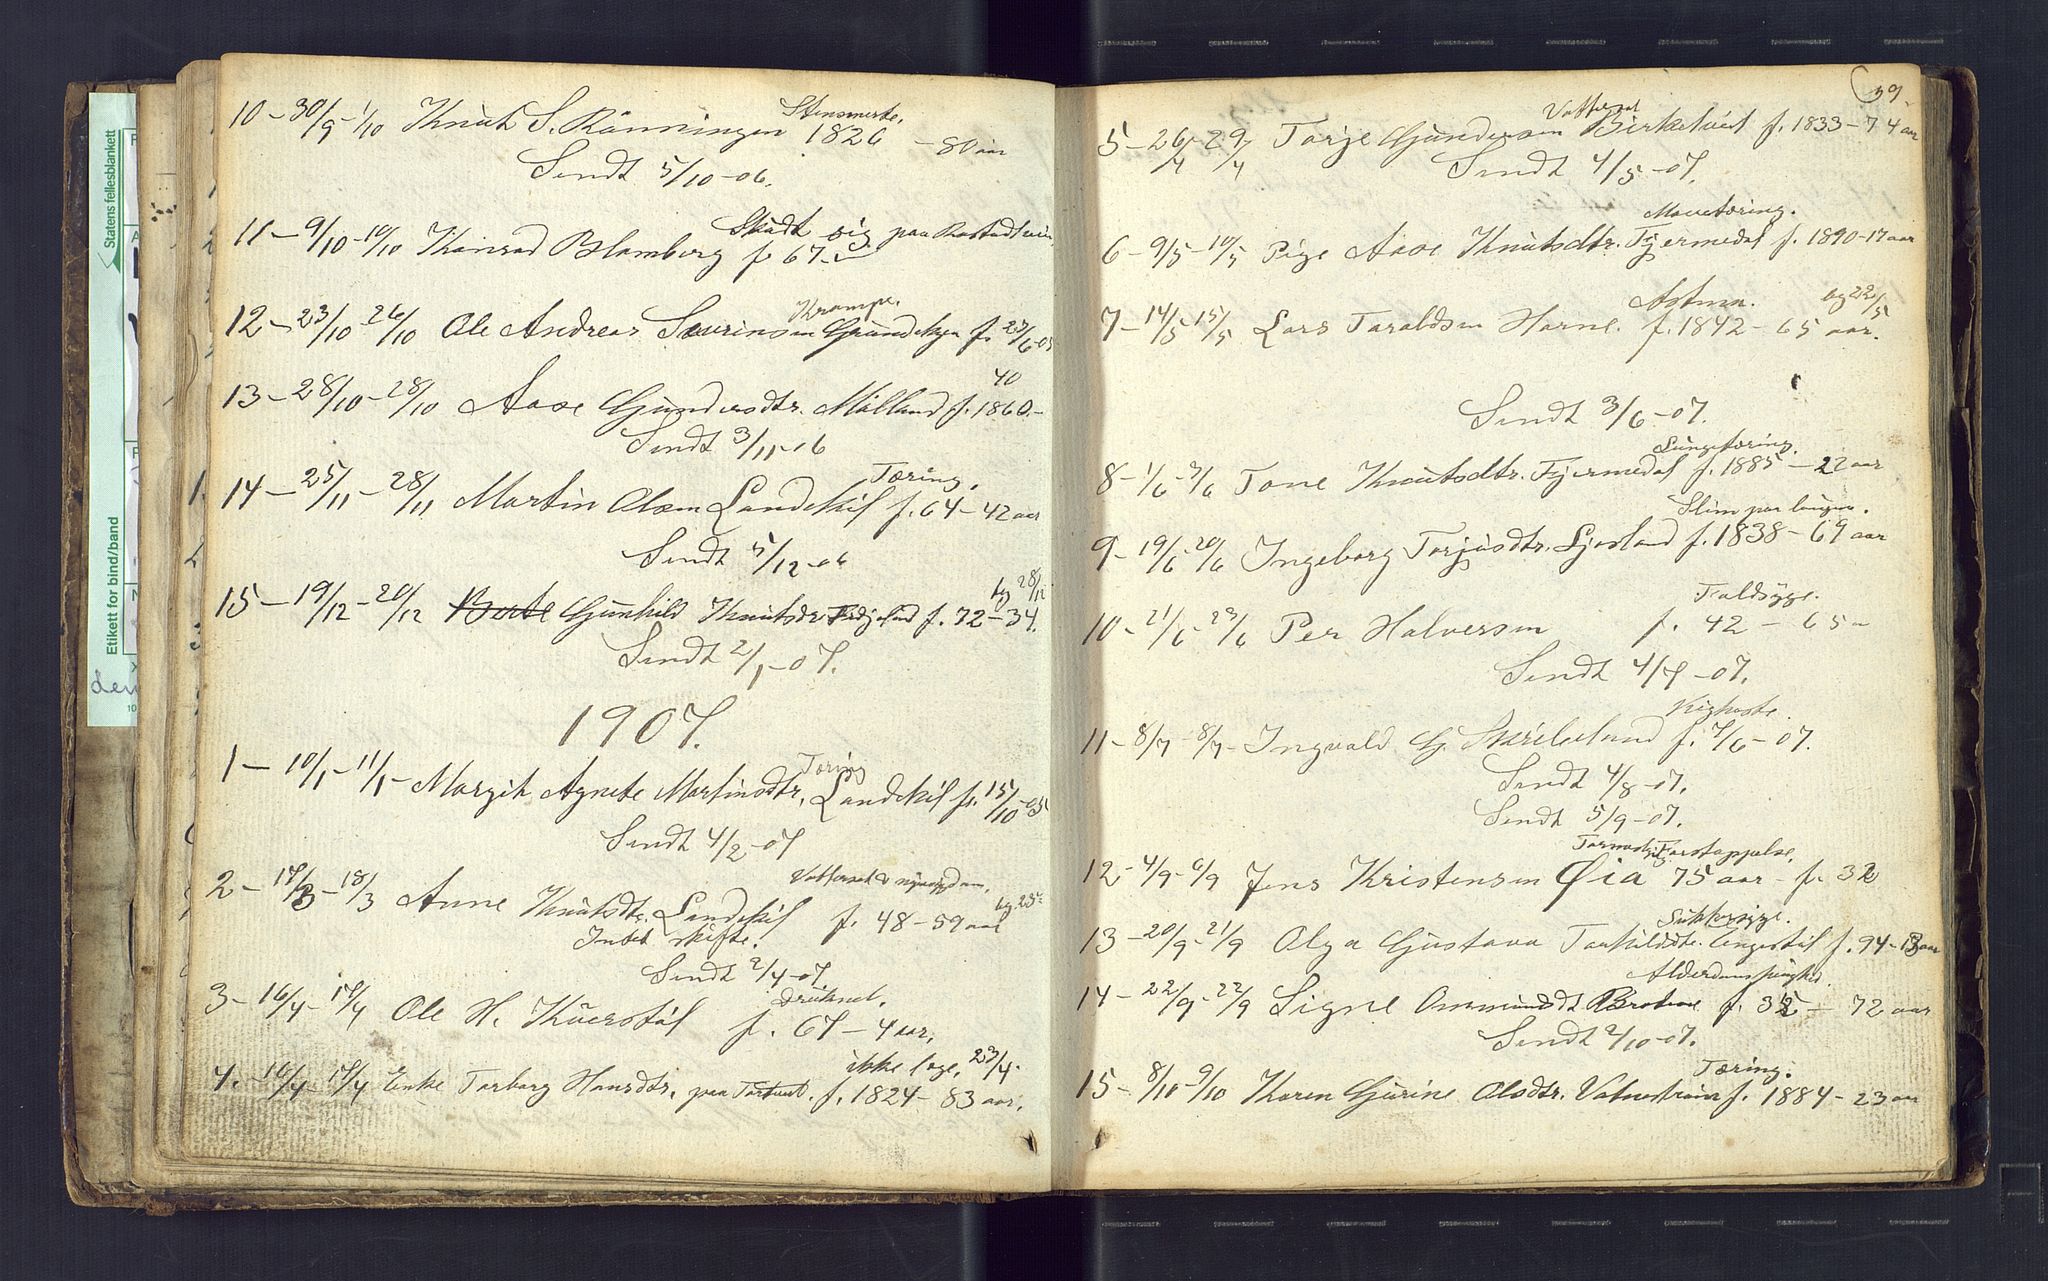 Stensmerte.
10 – 30/9 – 1/10 Knut S. Rönningen 1826 – 80 aar
Sendt 5/10 – 06.
Skudt sig paa
11 – 9/10 – 10/10 Konrad Blomberg f. 67.
Krampe.
12 – 23/10 – 26/10 Ole Andreas Severinsen f. 23/6 – 05
40
13 – 28/10 – 28/10 Aase Gundersdtr. Mölland f. 1860. –
Sendt 3/11 – 06
Tæring.
14 – 25/11 – 28/11 Martin Olsen Landskil f. 64 – 42 aar
Sendt 5/12 – 06
bg 28/12
15 – 19/12 – 20/12 Gunhild Knutsdtr f. 72 – 34.
Sendt 2/1 – 07.
1907.
Tæring
1 – 10/1 – 11/1 – Margit Agnete Martinsdtr. Landskil f. 15/10 – 05
Sendt 4/2 – 07
Vattersot &
2 – 17/3 – 18/3 Anne Knutsdtr. Landskil f. 48 – 59 aar
Intet skifte.
Sendt 2/4 – 07.
druknet.
3 – 16/4 – 17/4 Ole H. f. 67 – 4 aar.
ikke læge, 23/4.
4. – 16/4 – 17/4 Enke Torborg Hansdtr. paa f. 1824 – 83 aar.
Statens fellesblankett
Etikett for bind/band
39.
Vattersot
5 – 26/4 – 29/4 Torje Gundersen Birketveit f. 1833 – 74 aar
Sendt 4/5 – 07.
Mavetæring.
6 – 9/5 – 10/5 Pige Aase Knutsdtr. Fjermedal f. 1890 – 17 aar
Astma. bg 22/5
7 – 14/5 – 15/5 Lars Taraldsen Horne. f. 1842 – 65 aar.
Sendt 3/6 – 07.
Lungetæring.
8 – 1/6 – 3/6 Tone Knutsdtr. Fjermedal f. 1885 – 22 aar
Slim paa lungen.
9 – 19/6 – 20/6 Ingeborg Torjusdtr. Ljosland f. 1838 – 69 aar
Faldsyge.
10 – 21/6 – 23/6 Per Halversen f. 42 – 65 –
Sendt 4/7 – 07.
Kighoste.
11 – 8/7 – 8/7 – Ingvald G. Skreland f. 7/6 – 07.
Sendt 4/8 – 07.
Sendt 5/9 – 07.
Forstoppelse.
12 – 4/9 – 6/9 Jens Kristensen Øia 75 aar – f. 32
Sukkersyge.
13 – 20/9 – 21/9 Olga Gustava f. 94 – 13 aar
Alderdomssvaghed.
14 – 22/9 – 22/9 Signe f. 35 – 72 aar
Sendt 2/10 – 07.
Tæring.
15 – 8/10 – 9/10 Karen Gurine Olsdtr. Vatnestrøm f. 1884 – 23 aar